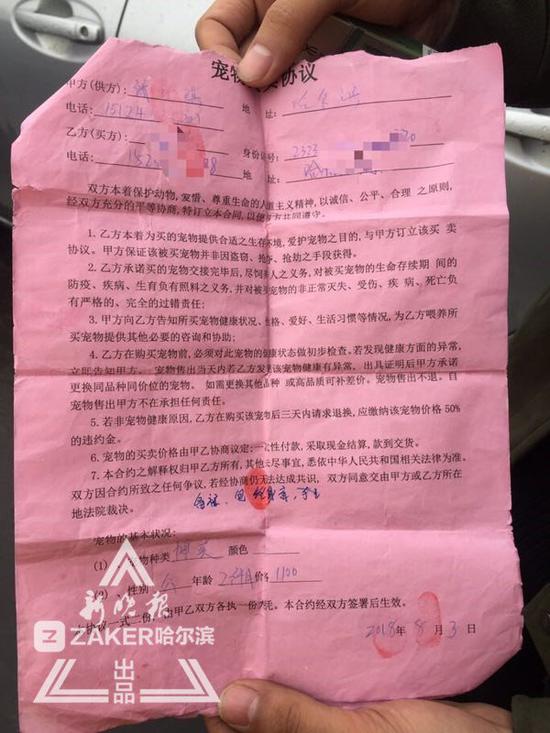 宠物 协议
甲方(供方): 地 址: 哈尔滨
电话: 15124
乙方(买方): 身份证号: 2323
电话: 152 8 地 址: 哈
双方本着保护动物,爱惜、尊重生命的人道主义精神,以诚信、公平、合理 之原则,
经双方充分的平等协商,特订立本合同,以便双方共同遵守。
1. 乙方本着为买的宠物提供合适之生存环境,爱护宠物之目的,与甲方订立该买 卖
协议。甲方保证该被买宠物并非因盗窃、抢夺、抢劫之手段获得。
2. 乙方承诺买的宠物交接完毕后,尽饲养人之义务,对被买宠物的生命存续期 间的
防疫、疾病、生育负有照料之义务,并对被买宠物的非正常灭失、受伤、疾 病、死亡负
有严格的、完全的过错责任;
3. 甲方向乙方告知所买宠物健康状况、性格、爱好、生活习惯等情况,为方 喂养所
买宠物提供其他必要的咨询和协助;
4. 乙方在购买宠物前,必须对此宠物的健康状态做初步检查。若发现健康方面的异常,
立即告知甲方。 宠物售出当天内若乙方发现该宠物健康有异常,出具证明后甲方承诺
更换同品种同价位的宠物。 如需更换其他品种 或高品质可补差价。宠物售出不退。自
宠物售出甲方不在承担任何责任。
5. 若非宠物健康原因,乙方在购买该宠物后三天内请求退换,应缴纳该宠物价格 50%
的违约金。
6. 宠物的买卖价格由甲乙协商议定:一次性付款,采取现金结算,款到交货。
7. 本合约之解释权归甲乙方所有,其他未尽事宜,悉依中华人民共和国相关法律为准。
双方因合约所致之任何争议,若经协商仍无法达成共识,双方同意交由甲方或乙方所在
地法院裁决。
宠物的基本状况:
(1) 宠物种类 颜色
(2)、性别 公 年龄 2 价 1100
协议一式二份,由甲乙双方各执一份。本合约经双方签署后生效。
2018年 8 月 3 日
新晚报
ZAKER哈尔滨
出品